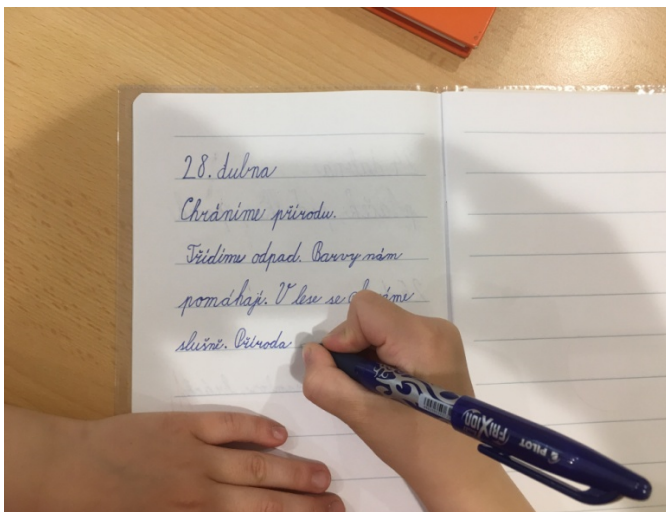 28. dubna
Chráníme přírodu.
Třídíme odpad. Barvy nám
pomáhají. V lese se chováme
slušně. Příroda
FRIXION
PILOT